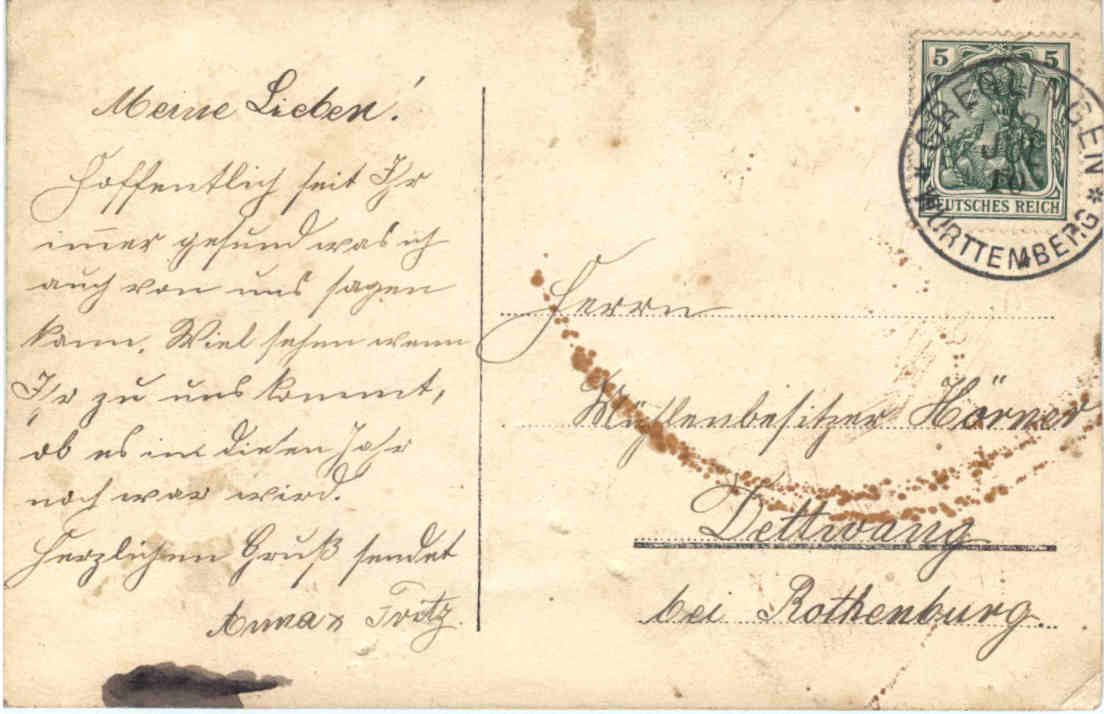 Meine Lieben!
Hoffentlich seit Ihr
im̄er gesund was ich
auch von uns sagen
kann. Wiel sehen wenn
Ihr zu uns kommt,
ob es in diesen Jahr
noch war wird.
Herzlichen Gruß sendet
Anna & Fritz.
5 5
DEUTSCHES REICH
CREGLINGEN
JUL
10
* WÜRTTEMBERG *
Herrn
Mühlenbesitzer Hörner
Dettwang
bei Rothenburg.